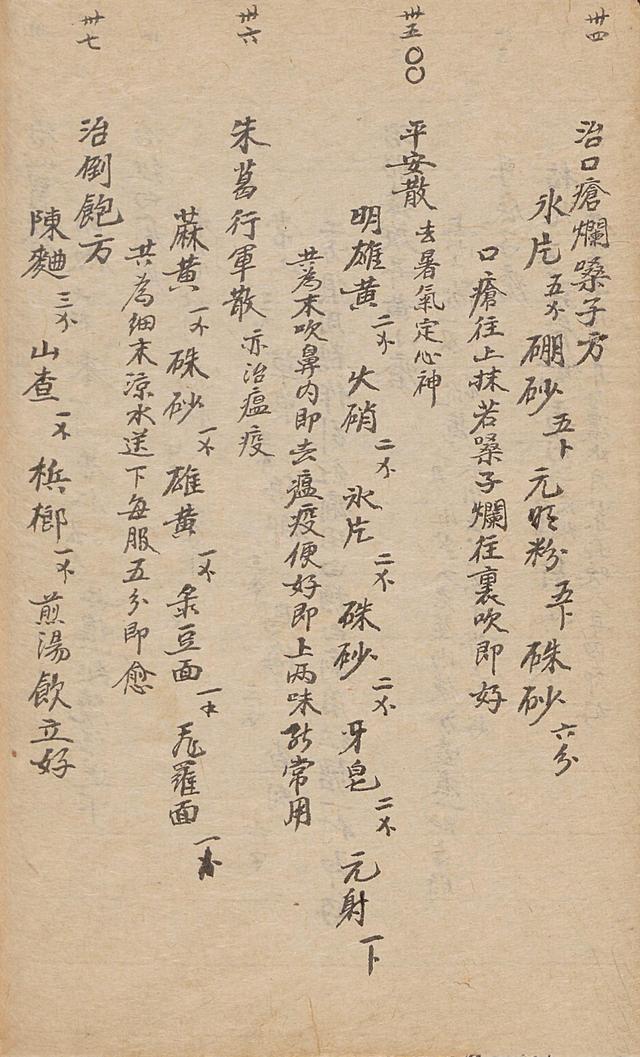 卅四
治口瘡爛嗓子方
氷片五 硼砂五 元明粉五 硃砂六分
口瘡往上抹若嗓子爛往裏吹即好
卅五〇〇
平安散 去暑氣定心神
明雄黃二 火硝二 氷片二 硃砂二 牙皂二 元射一
共為末吹鼻内即去瘟疫便好即上两味能常用
卅六
朱葛行軍散 亦治瘟疫
蔴黃一 硃砂一 雄黃一 菉豆面一 飛羅面一
共為細末涼水送下每服五分即愈
卅七
治倒飽方
陳麯三 山查一 梹榔一 煎湯飲立好